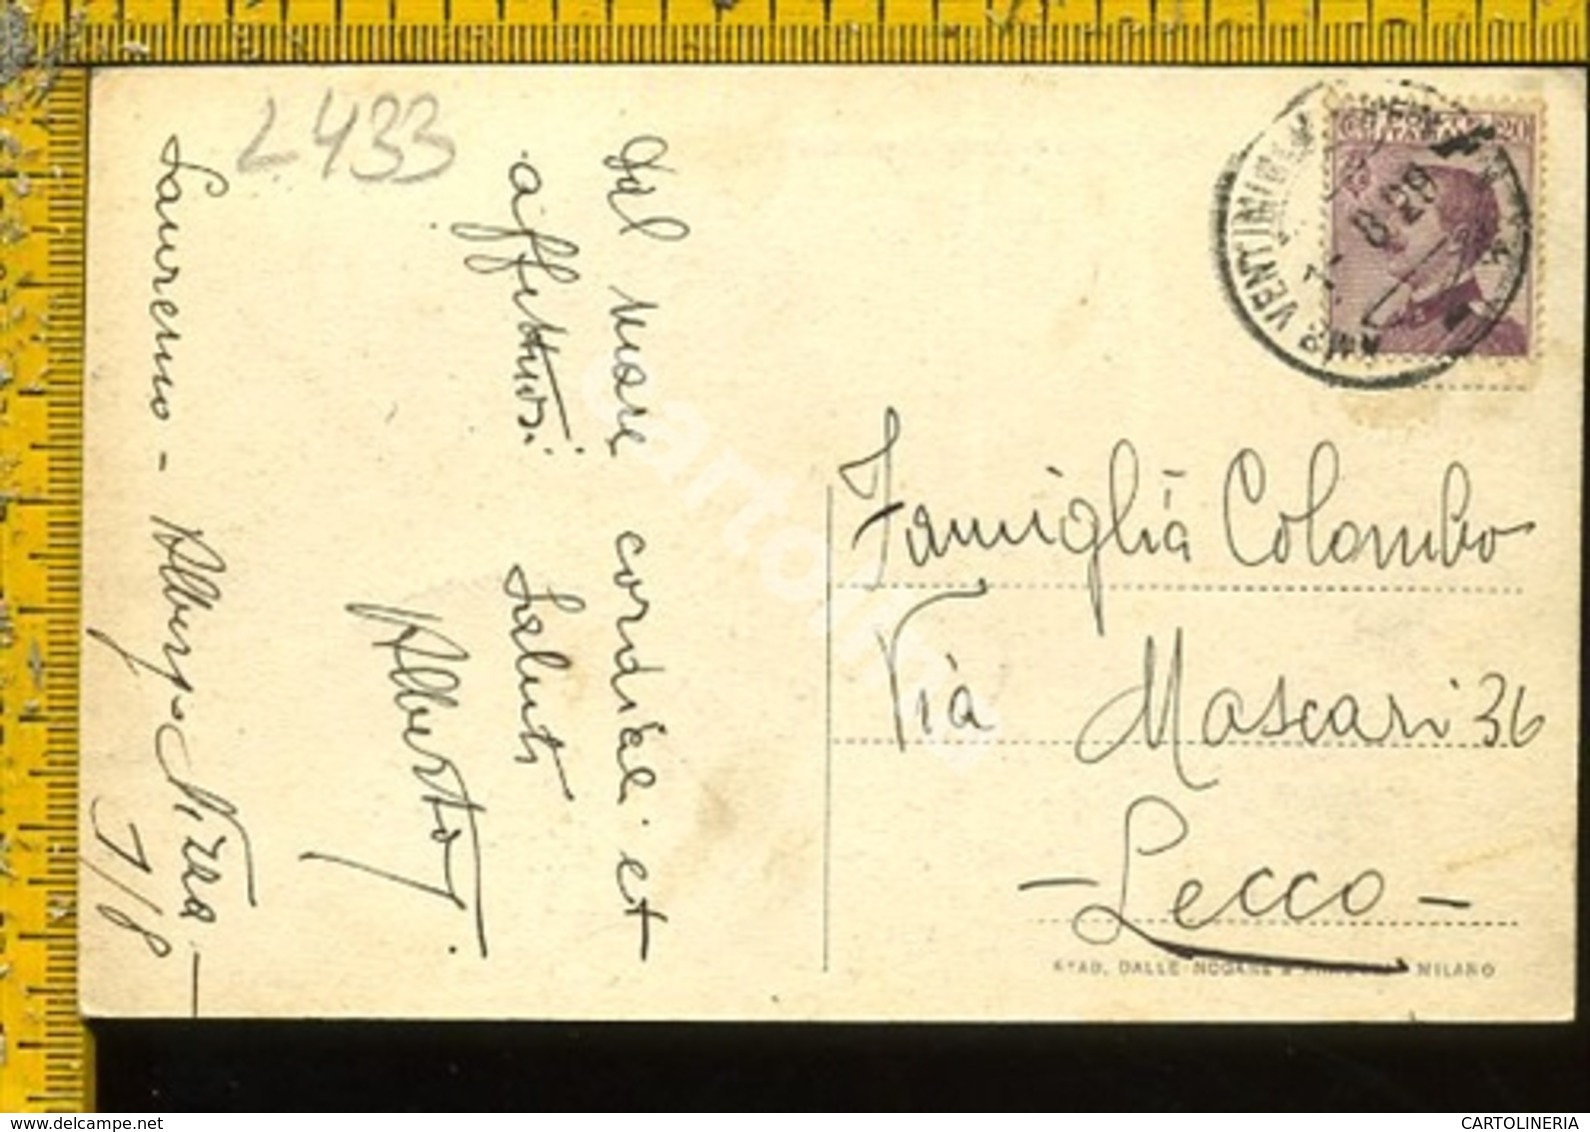 L 433
Dal Mare cordiali et
affettuosi Saluti
Alberto
Sanremo - Albergo Nizza -
7/8
Famiglia Colombo
Via Mascari 36
- Lecco -
AMB. VENTIMIGLIA
8 29
20
STAB. DALLE NOGARE & ARMETTI MILANO
cartolineria
www.delcampe.net
CARTOLINERIA